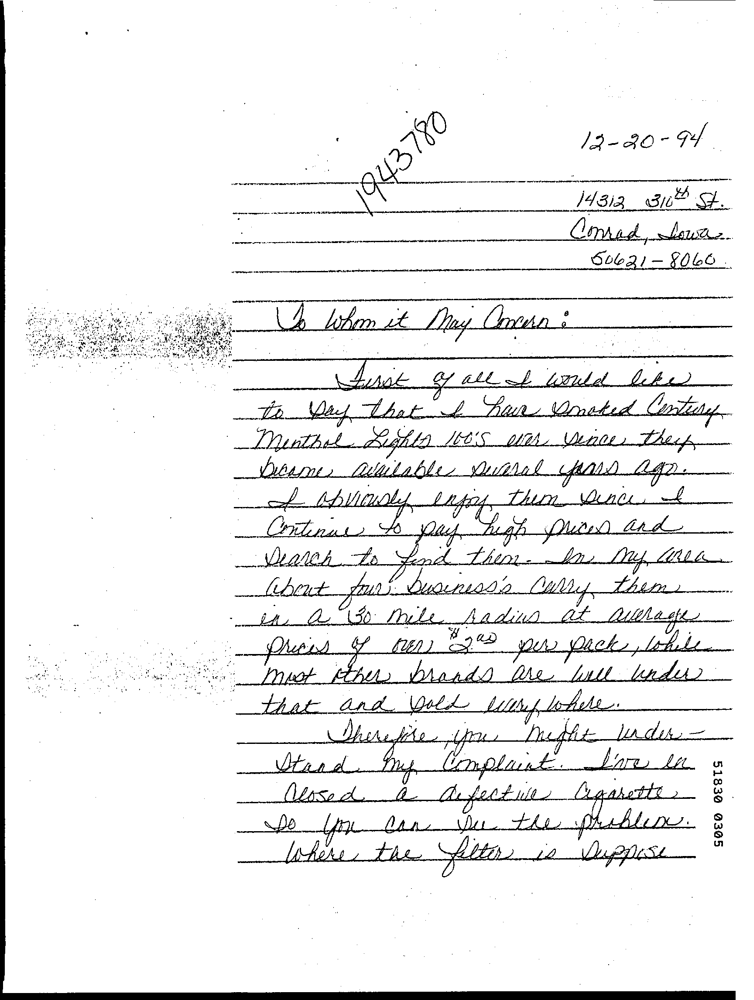 1943780
12-20-94
14312 316th St.
Conrad, Iowa
50621-8060
To Whom it May Concern:
First of all I would like
to say that I have smoked Century
Menthol Lights 100's ever since they
became available several years ago.
I obviously enjoy them since I
Continue to pay high prices and
search to find them. In my area
about four business's carry them
in a 30 mile radius at average
prices of over $2.00 per pack, while
most other brands are well under
that and sold every where.
Therefore, you might under-
stand my complaint. I've en
closed a defective cigarette
so you can see the problem.
Where the filter is suppose
51830 0305